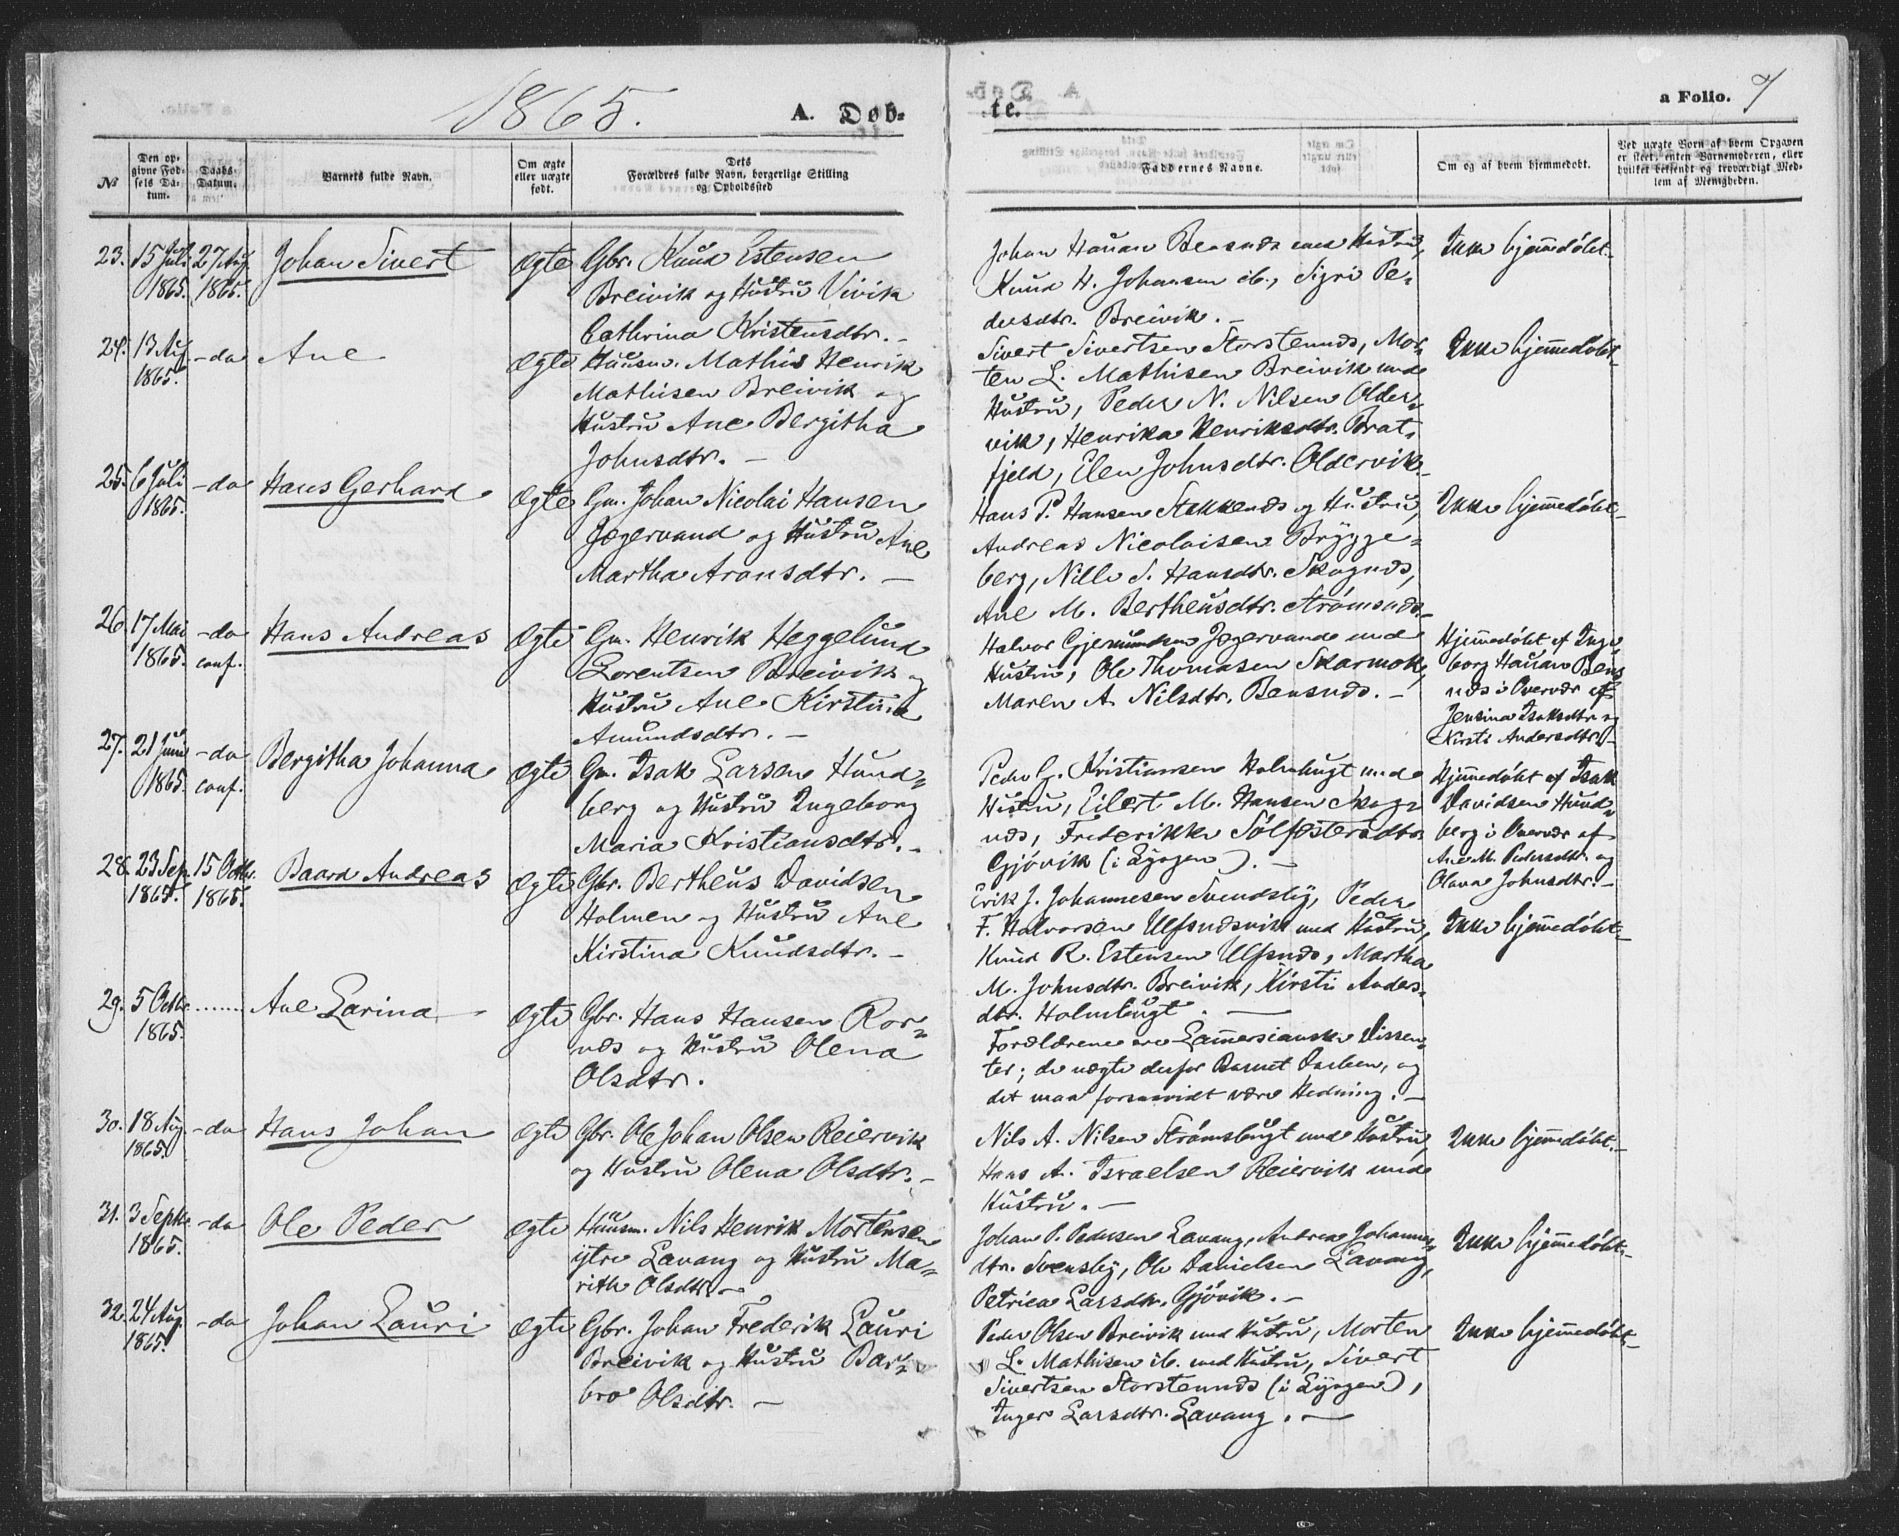 1865.
A. Døb-
te.
a Folio. 7
№
Den op-
givne Fød-
sels Da-
tum.
Daabs-
Datum.
Barnets fulde Navn.
Om ægte
eller uægte
født.
Dets
Forældres fulde Navn, borgerlige Stilling
og Opholdssted
Faddernes Navne.
Om og af hvem hjemmedøbt.
Ved uægte Børn af hvem Opgaven
er skeet, enten Barnemoderen, eller
hvilket bekjendt og troværdigt Med-
lem af Menigheden.
23. 15 Juli 1865. 27 Aug. 1865. Johan Sivert ægte
Gbr. Knud Estensen
Breivik og Hustru Vivik
Cathrina Kristensdtr. -
Johan Hansen Bensnæs med Hustru,
Knud H. Johansen ib., Sigri Pe-
dersdtr. Breivik. -
Ikke hjemmedøbt.
24. 13 Aug 1865. - do Ane ægte
Huusm. Mathis Henrik
Mathisen Breivik og
Hustru Ane Bergitha
Johnsdtr. -
Sivert Sivertsen Storstennæs, Mor-
ten L. Mathisen Breivik med
Hustru, Peder N. Nilsen Older-
vik, Henrika Henriksdtr. Brat-
fjeld, Elen Johnsdtr. Oldervik
Ikke hjemmedøbt.
25. 6 Juli 1865. - do Hans Gerhard ægte
Gm. Johan Nicolai Hansen
Jægervand og Hustru Ane
Martha Aronsdtr. -
Hans P. Hansen Stakkenæs og Hustru,
Andreas Nicolaisen Brygge-
berg, Nille S. Hansdtr. Skognæs,
Ane M. Bertheusdtr. Strømsnæs.
Ikke hjemmedøbt
26. 17 Mai 1865. - do conf. Hans Andreas ægte
Gm. Henrik Heggelund
Lorentsen Breivik og
Hustru Ane Kirstina
Amundsdtr. -
Halvor Gjermundsen Jægervand med
Hustru, Ole Thomasen Skarmok,
Maren A. Nilsdtr. Bensnæs. -
Hjemmedøbt af Inge-
borg Hansen Bens-
næs i Overvær af
Jensina Isaksdtr og
Kirsti Andersdtr. -
27. 21 Juni 1865. - do conf. Bergitha Johanna ægte
Gm. Isak Larsen Hund-
berg og Hustru Ingeborg
Maria Kristiansdtr. -
Peder G. Kristiansen Holmbugt med
Hustru, Eilert M. Hansen Skog-
næs, Frederikke Sølfestersdtr
Gjövik (i Lyngen). -
Hjemmedøbt af Isak
Davidsen Hund-
berg i Overvær af
Ane M. Pedersdtr. og
Olava Johnsdtr. -
28. 23 Sep. 1865. 15 Octbr. 1865. Baard Andreas ægte
Gbr. Bertheus Davidsen
Holmen og Hustru Ane
Kirstina Knudsdtr. -
Erik J. Johannesen Svendsby, Peder
F. Halvorsen Ulfsnæsvik med Hustru,
Knud R. Estensen Ulfsnæs, Martha
M. Johnsdtr. Breivik, Kirsti Anders-
dtr. Holmbugt. -
Ikke hjemmedøbt
29. 5 Octbr 1865. ........ Ane Larina ægte
Gbr. Hans Hansen Ror-
næs og Hustru Olena
Olsdtr.
Forældrene ere Lammersianske Dissen-
ter; de nægte derfor Barnet Daaben, og
det maa forsaavidt være Hedning. -
30. 18 Aug. 1865. - do Hans Johan ægte
Gbr. Ole Johan Olsen Reiervik
og Hustru Olena Olsdtr. -
Nils A. Nilsen Strømsbugt med Hustru,
Hans A. Israelsen Reiervik med
Hustru. -
Ikke hjemmedøbt. -
31. 3 Septbr. 1865. - do Ole Peder ægte
Huusm. Nils Henrik Mortensen
ytre Lavang og Hustru Ma-
rith Olsdtr. -
Johan P. Pedersen Lavang, Andrea Johannes-
dtr. Svensby, Ole Danielsen Lavang,
Petrica Larsdtr. Gjövik. -
Ikke hjemmedøbt. -
32. 24 Aug. 1865. - do Johan Lauri ægte
Gbr. Johan Frederik Lauri
Breivik og Hustru Bar-
bro Olsdtr. -
Peder Olsen Breivik med Hustru, Morten
L. Mathisen ib. med Hustru, Sivert
Sivertsen Storstennæs (i Lyngen),
Inger Larsdtr. Lavang. -
Ikke hjemmedøbt. -